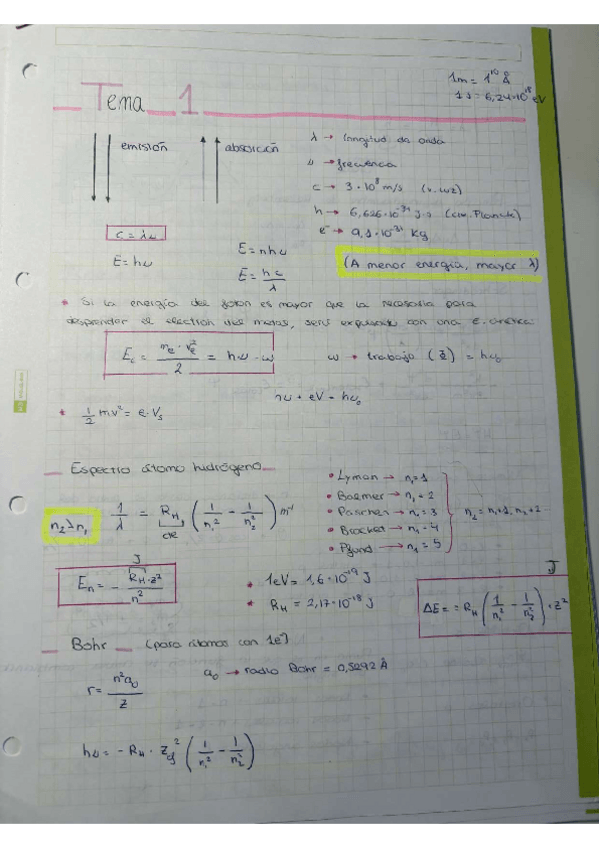 1m = 1^10 Å
1J = 6,24·10^18 eV
Tema 1
emisión
absorción
λ → longitud de onda
ν → frecuencia
c → 3·10^8 m/s (v. luz)
h → 6,626·10^-34 J·s (cte. Planck)
e^- → 9,1·10^-31 Kg
c = λν
E = hν
E = nhν
E = hc/λ
(A menor energía, mayor λ)
* Si la energía del foton es mayor que la necesaria para
desprender el electron del metal, será expulsado con una E. cinética:
E_c = m_e · v_e^2 / 2 = hν - ω
ω → trabajo (Φ) = hν_0
hν = eV - hν_0
* 1/2 mv^2 = e·V_s
Espectro átomo hidrógeno
n_2 > n_1
1/λ = R_H (1/n_1^2 - 1/n_2^2) m^-1
cte
• Lyman → n_1 = 1
• Baemer → n_1 = 2
• Paschen → n_1 = 3
• Bracket → n_1 = 4
• Pfund → n_1 = 5
n_2 = n_1+1, n_1+2
J
E_n = - R_H·z^2 / n^2
* 1eV = 1,6·10^-19 J
* R_H = 2,17·10^-18 J
J
ΔE = = R_H (1/n_1^2 - 1/n_2^2) · z^2
Bohr (para átomos con 1e^-)
r = n^2 a_0 / z
a_0 → radio Bohr = 0,5292 Å
hν = - R_H · Z_ef^2 (1/n_1^2 - 1/n_2^2)